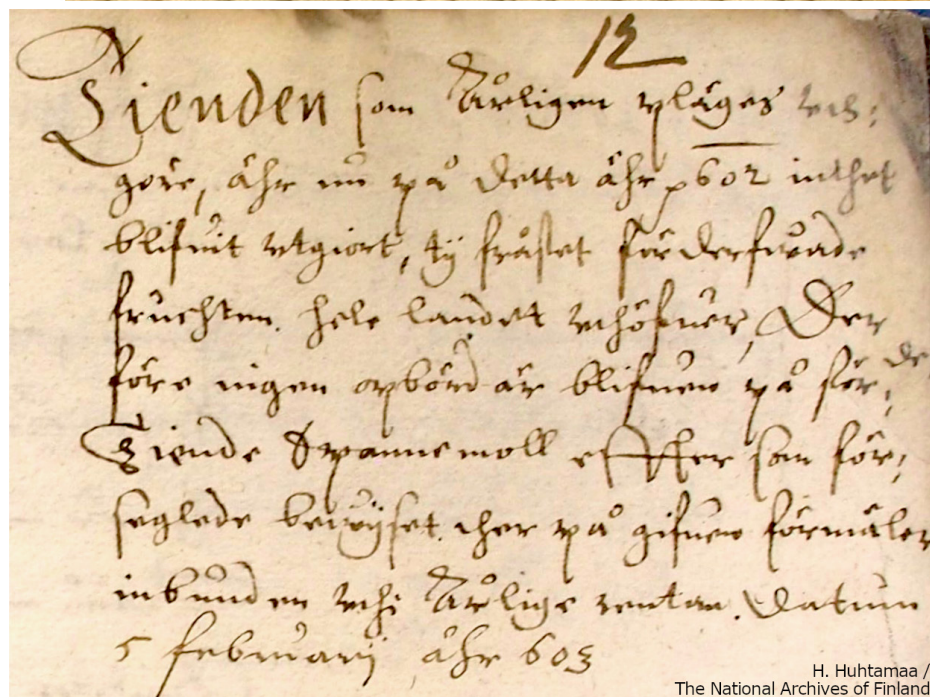 12
Tienden som Årligen pläges vth:
göre, ähr nu på detta åhr 1602 inthet
blifuit vtgiort, ty fråset förderfwade
fruchten. hele landet vthöfuer, Der
före ingen opbörd är blifuen på för: de
Tiende Spannemoll effther som för:
seglede bewijset. ther på gifuen förmäler
inbunden vthi Årlige rentan. Datum
5 februarij åhr 603
H. Huhtamaa /
The National Archives of Finland